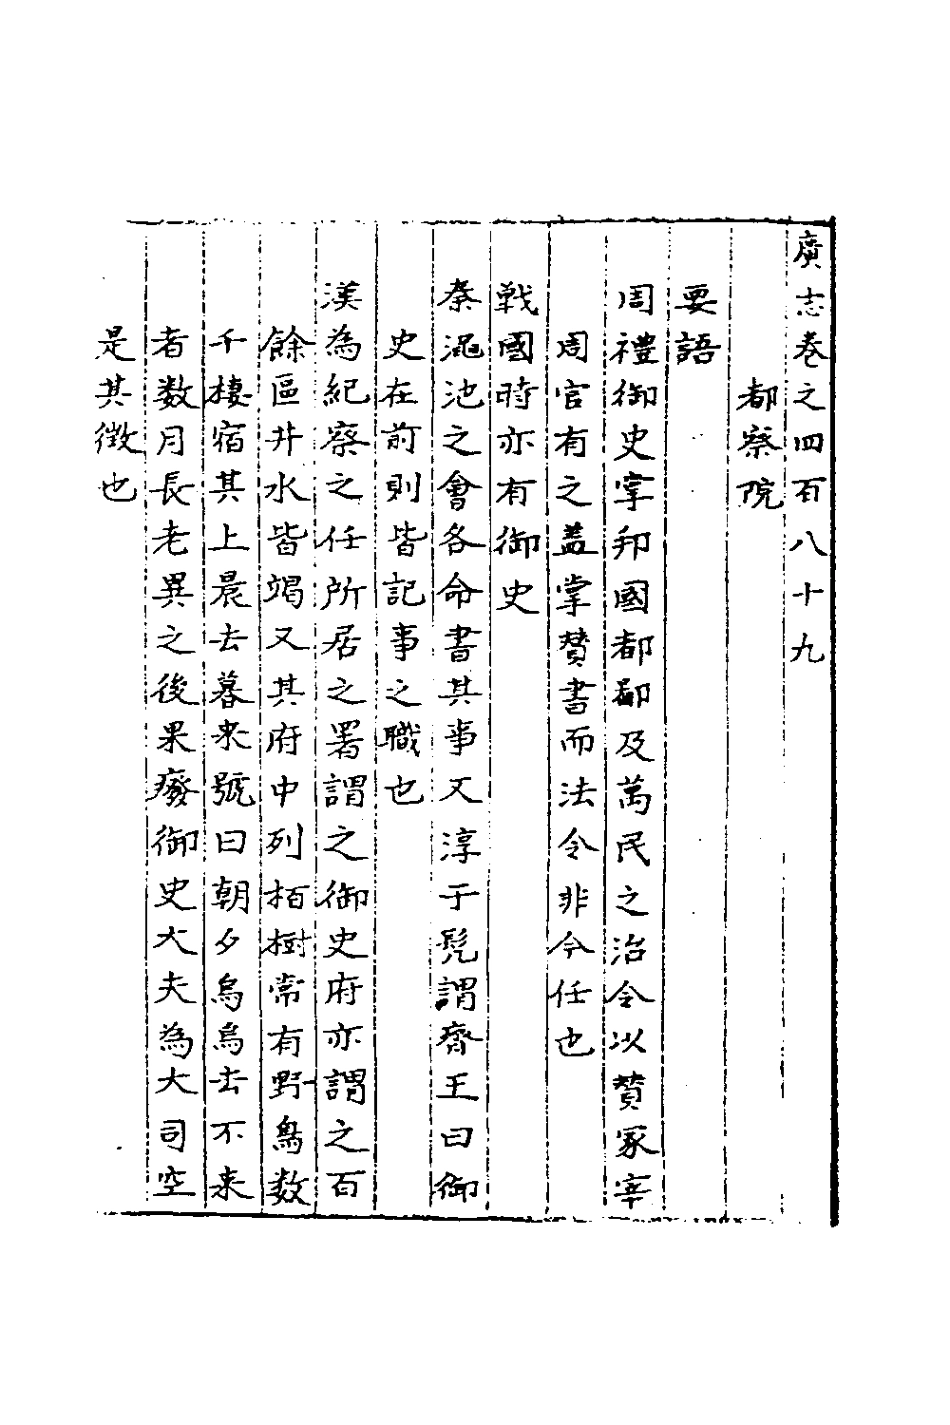 廣志卷之四百八十九
都察院
要語
周禮御史掌邦國都鄙及萬民之治令以贊冡宰
周官有之蓋掌贊書而法令非今任也
戰國時亦有御史
秦澠池之會各命書其事又淳于髡謂齊王曰御
史在前則皆記事之職也
漢為紀察之任所居之署謂之御史府亦謂之百
餘區井水皆竭又其府中列栢樹常有野鳥數
千棲宿其上晨去暮來號曰朝夕烏烏去不来
者数月長老異之後果廢御史大夫為大司空
是其徴也